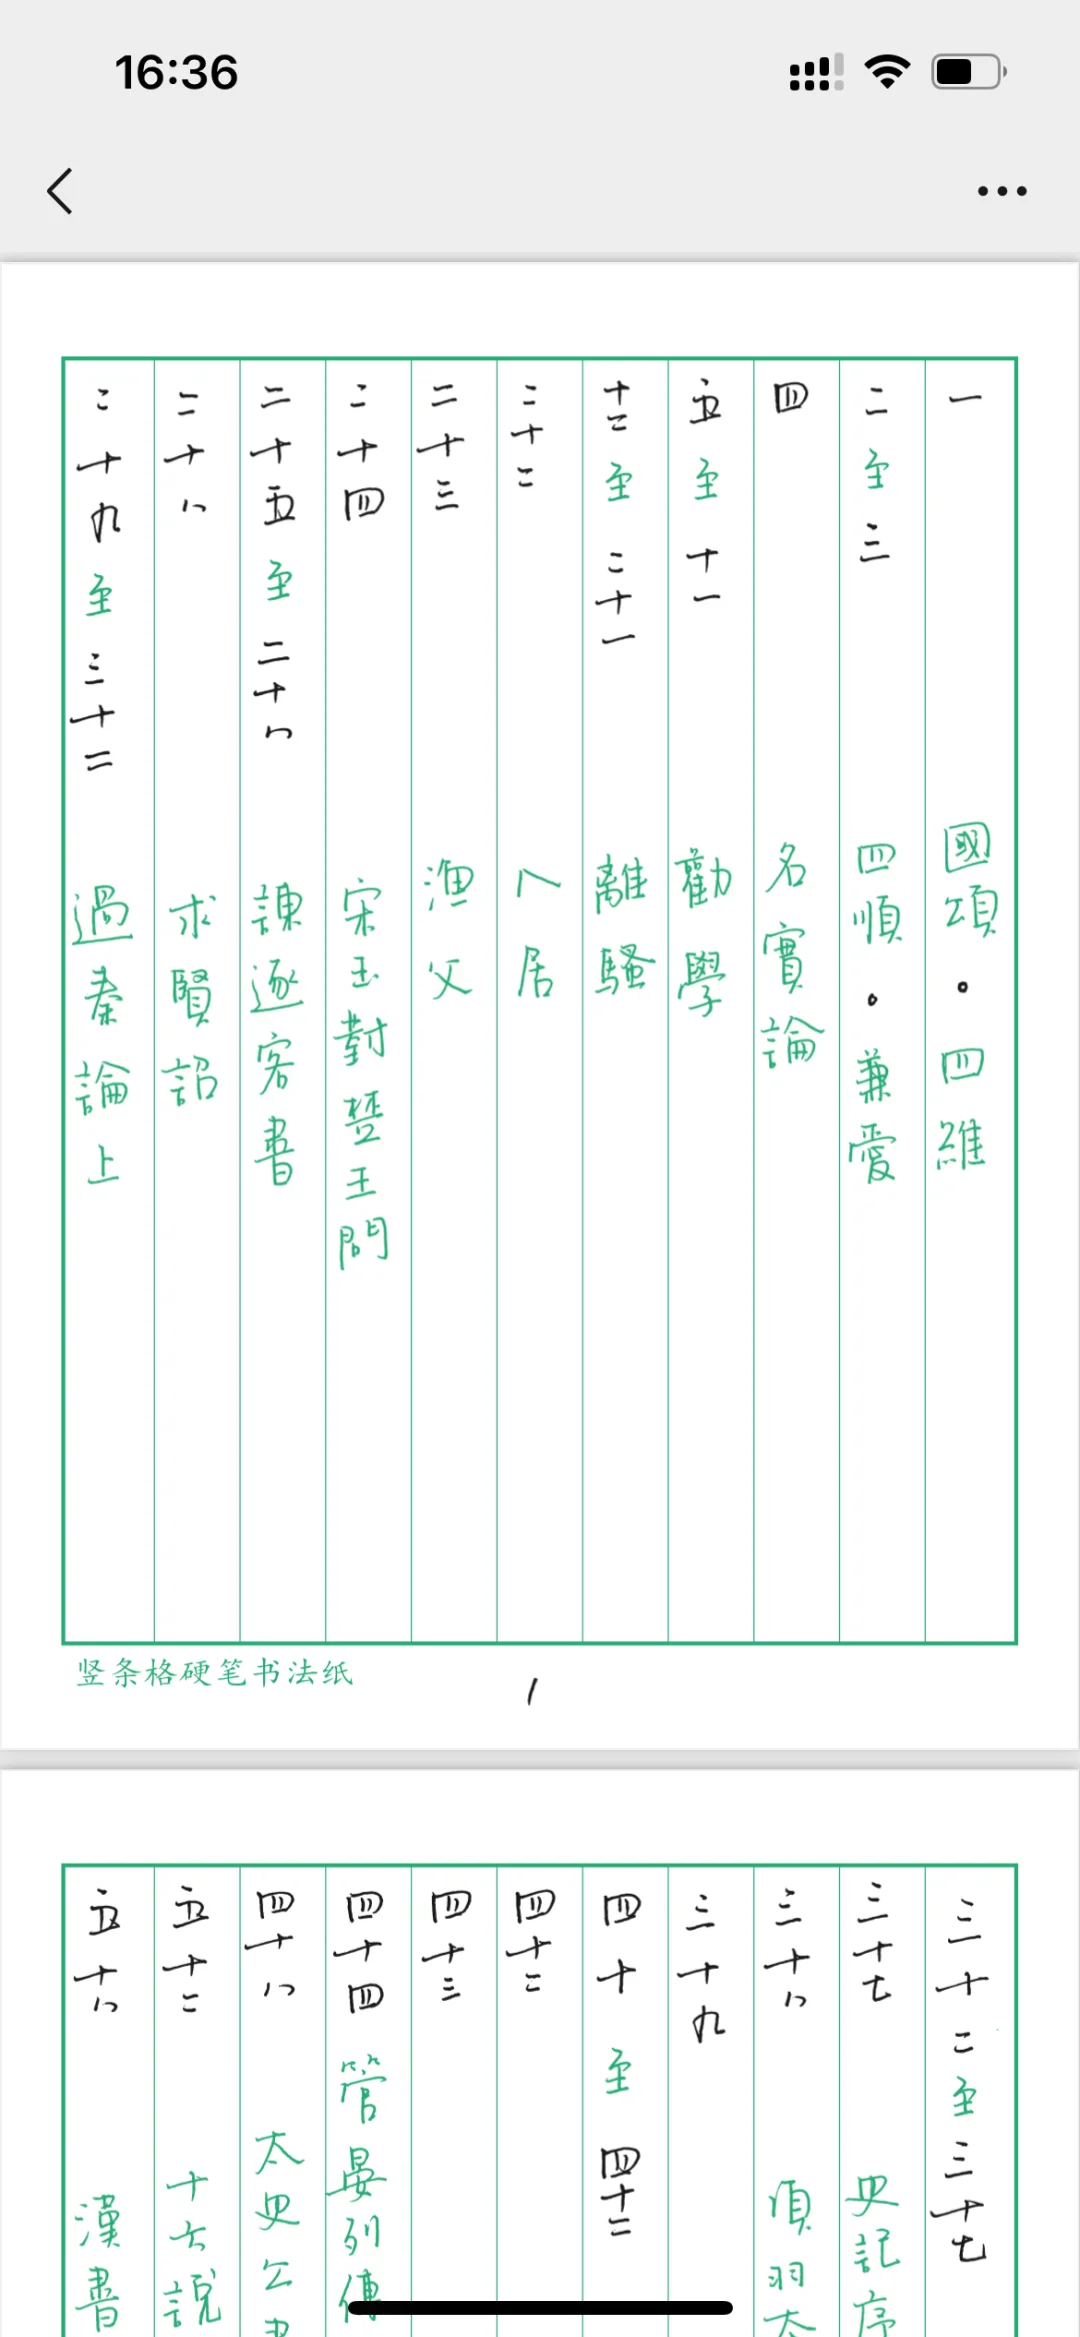 16:36
一 國頌。四維
二至三 四順。兼愛
四 名實論
五至十一 勸學
十二至二十一 離騷
二十二 卜居
二十三 漁父
二十四 宋玉對楚王問
二十五至二十八 諫逐客書
二十八 求賢詔
二十九至三十二 過秦論上
竖条格硬笔书法纸
1
三十二至三十七
三十七 史記序
三十八 項羽本
三十九
四十至四十二
四十二
四十三
四十四 管晏列傳
四十八 太史公書
五十二 十六說
五十八 漢書